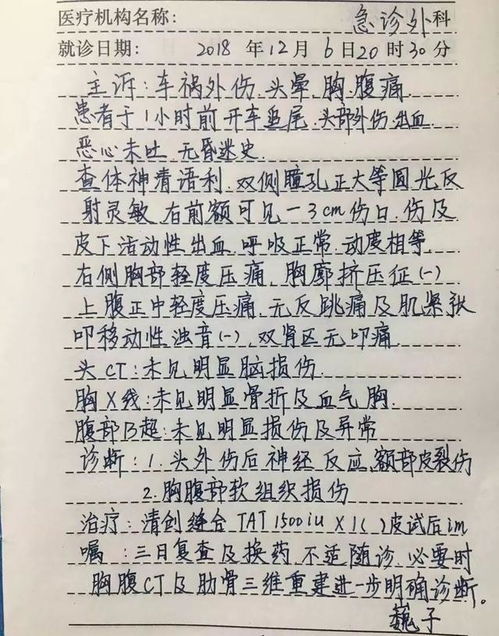 医疗机构名称: 急诊外科
就诊日期: 2018 年 12 月 6 日 20 时 30 分
主诉:车祸外伤.头晕.胸.腹痛
患者于1小时前开车追尾.头部外伤.出血
恶心未吐.无昏迷史.
查体神清语利.双侧瞳孔正大等圆光反
射灵敏.右前额可见一3cm伤口,伤及
皮下活动性出血.呼吸正常.动度相等.
右侧胸部轻度压痛,胸廓挤压征(-)
上腹正中轻度压痛.无反跳痛及肌紧张
叩移动性浊音(-),双肾区无叩痛
头CT:未见明显脑损伤
胸X线:未见明显骨折及血气胸.
腹部B超:未见明显损伤及异常
诊断:1.头外伤后神经反应,额部皮裂伤
2.胸腹部软组织损伤
治疗:清创缝合 TAT 1500iu X1( )皮试后im
嘱:三日复查及换药.不适随诊.必要时
胸腹CT及肋骨三维重建进一步明确诊断。
魏子